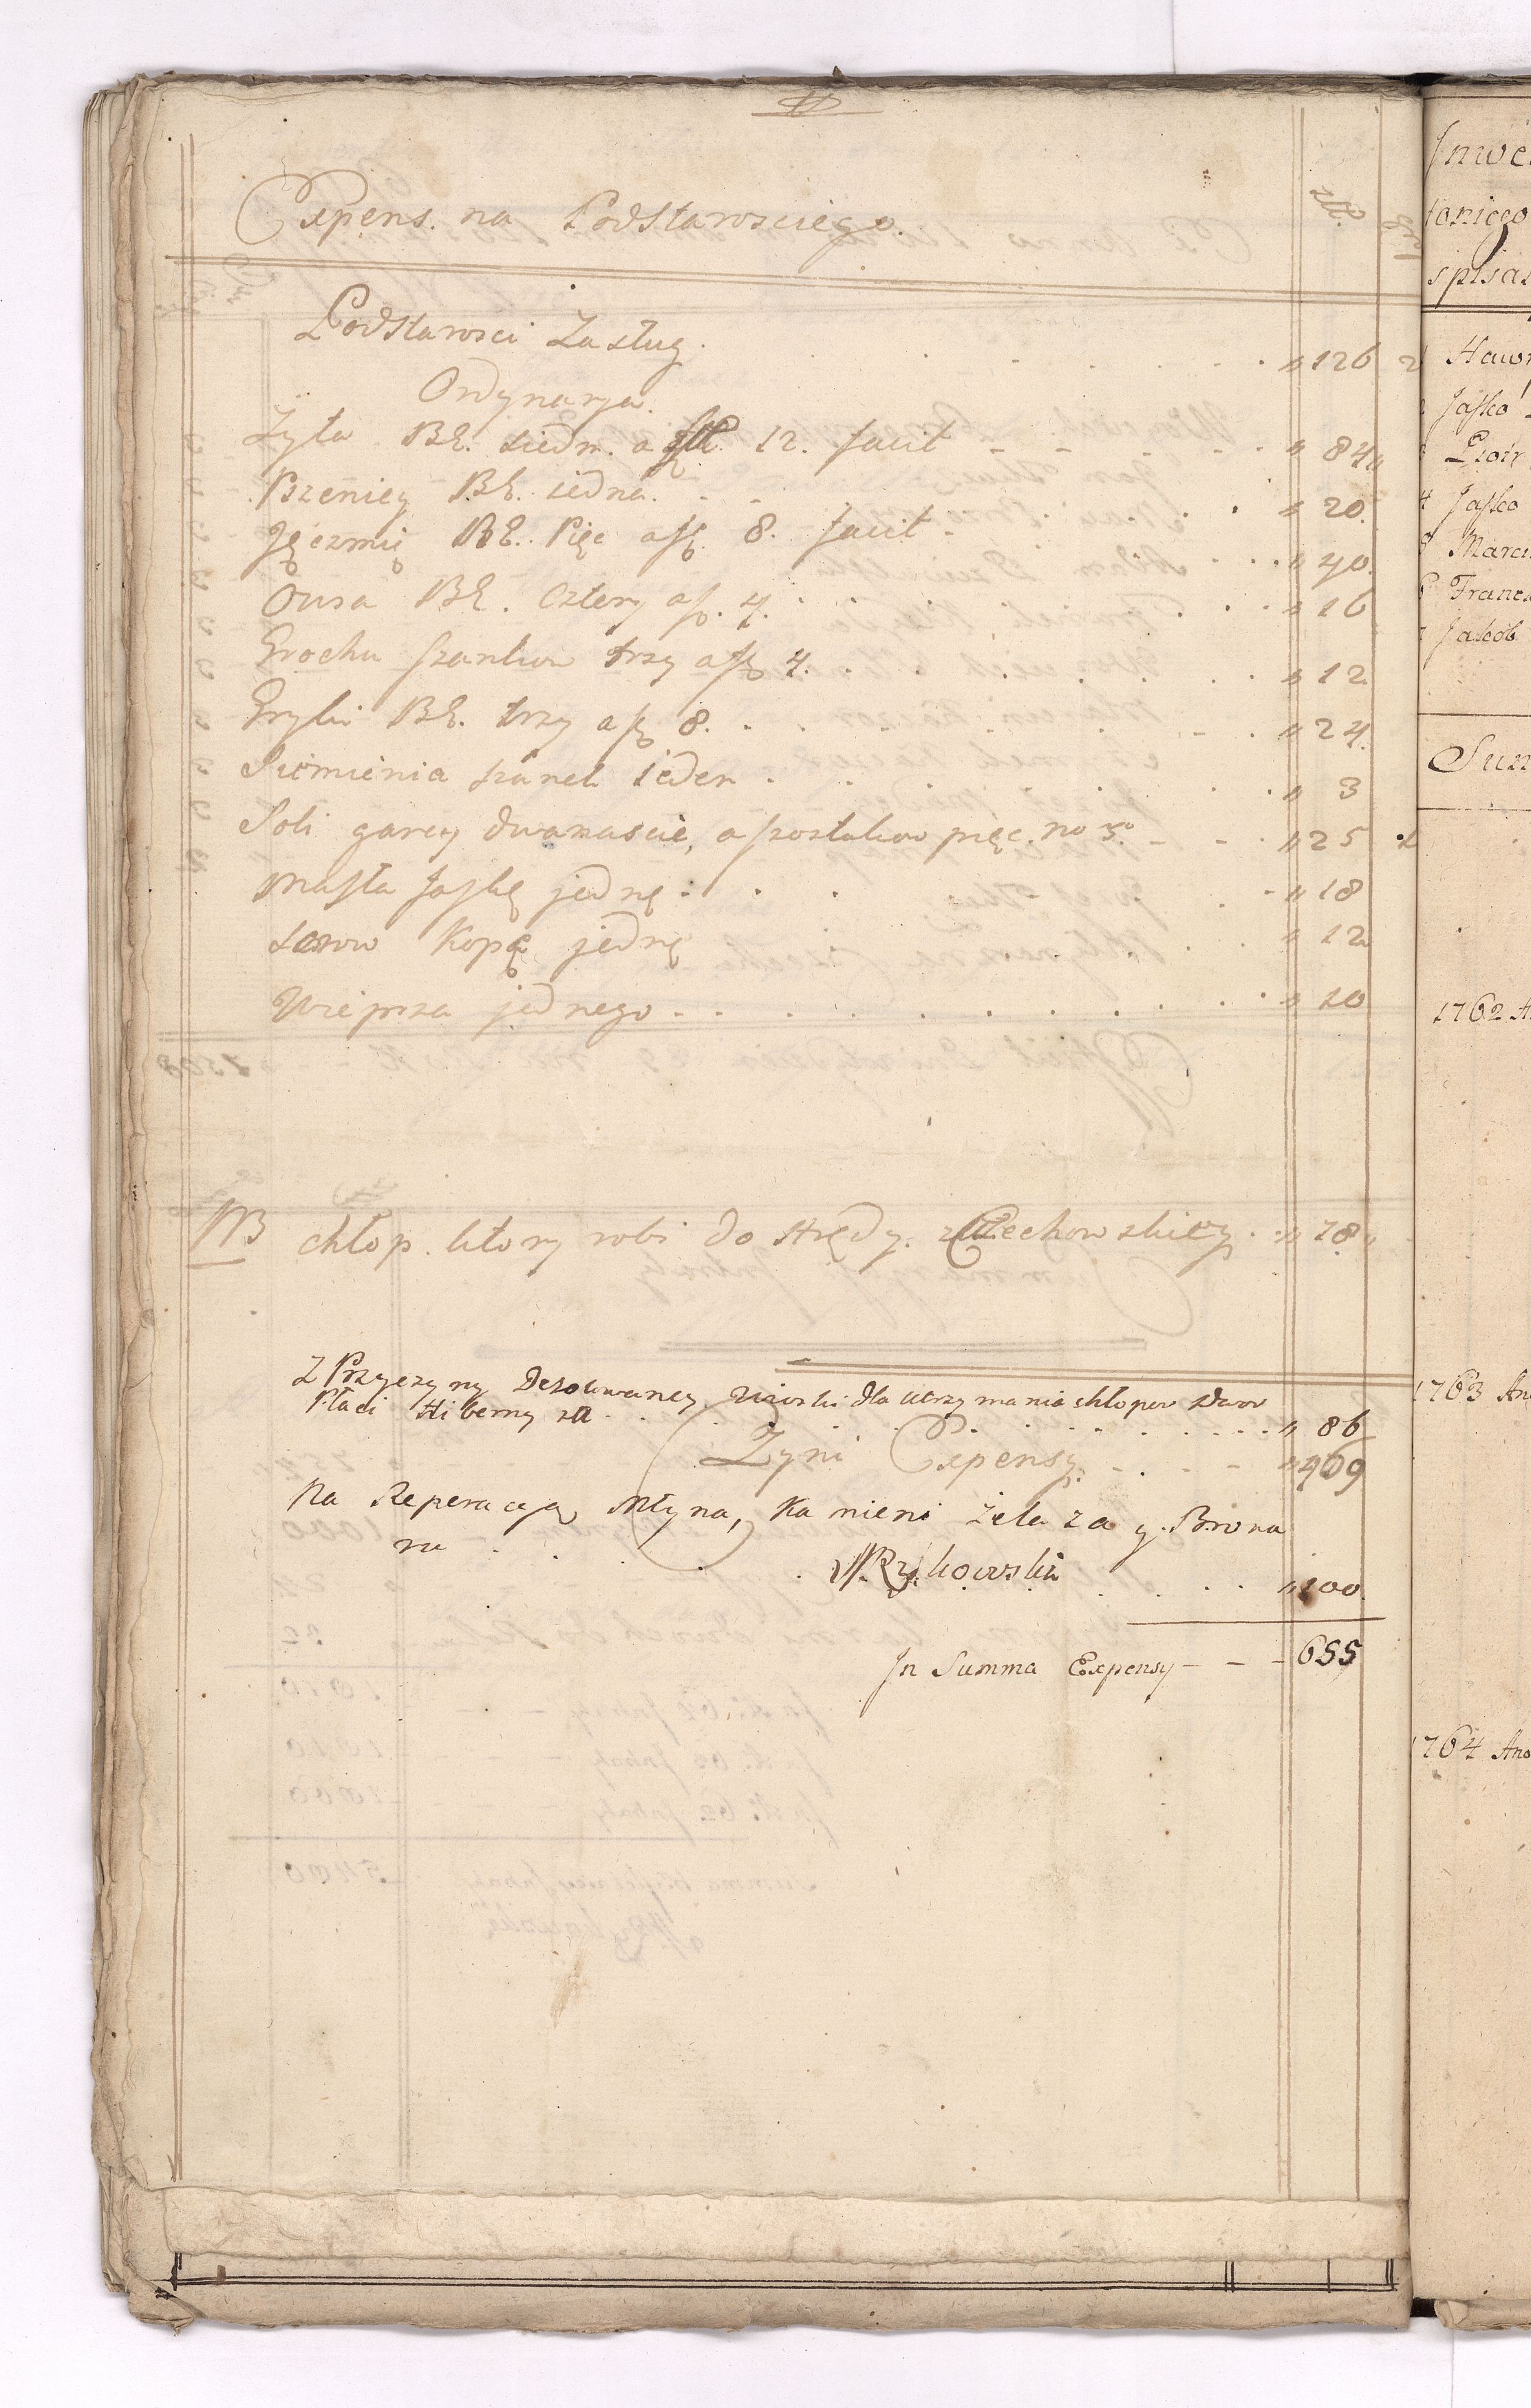 Expens. na Podstarosciego. złł. gr
Podstarosci Zasług. " 126 2
Ordynarya.
Zyta BE. siedm. a 12. facit " 84 "
Pszenicy BE. iedna. " 20.
Jęczmię BE. Pięc a fl 8. facit " 40.
Owsa BE. Cztery a f. 4. " 16
Grochu szankow trzy a fl 4. " 12
Gryki BE. trzy a fl 8. " 24.
Siemienia szanek ieden " 3
Soli garcy dwanascie, a szostakow pięc. no 5. " 25
Masła faskę jednę " 18
serow Kopę jednę " 12
Wieprza jednego " 20
NB chłop. ktory robi do Hrędy. " 18 "
Z Przyczyny Dezolowaney Wioski dla utrzymania chłopow Dwor
Płaci Hiberny za " 86
Zyni Expensy. " 469
Na Reperacyą Młyna, Kamieni żelaza y. Brona
ru " 100.
In Summa Expensy 655
Inwe
spisa
Jaśko
Piotr
4 Jaśko
Marci
Franc
Jakob
Sum
1762 A
1763 An
1764 Ano